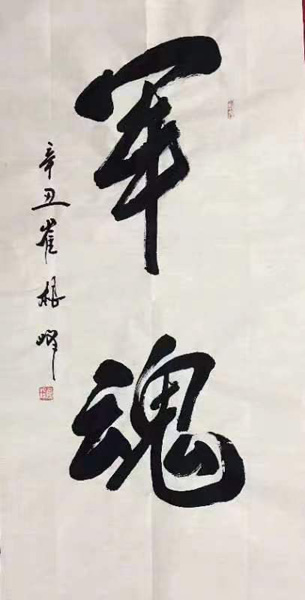 軍魂
辛丑崔根峰